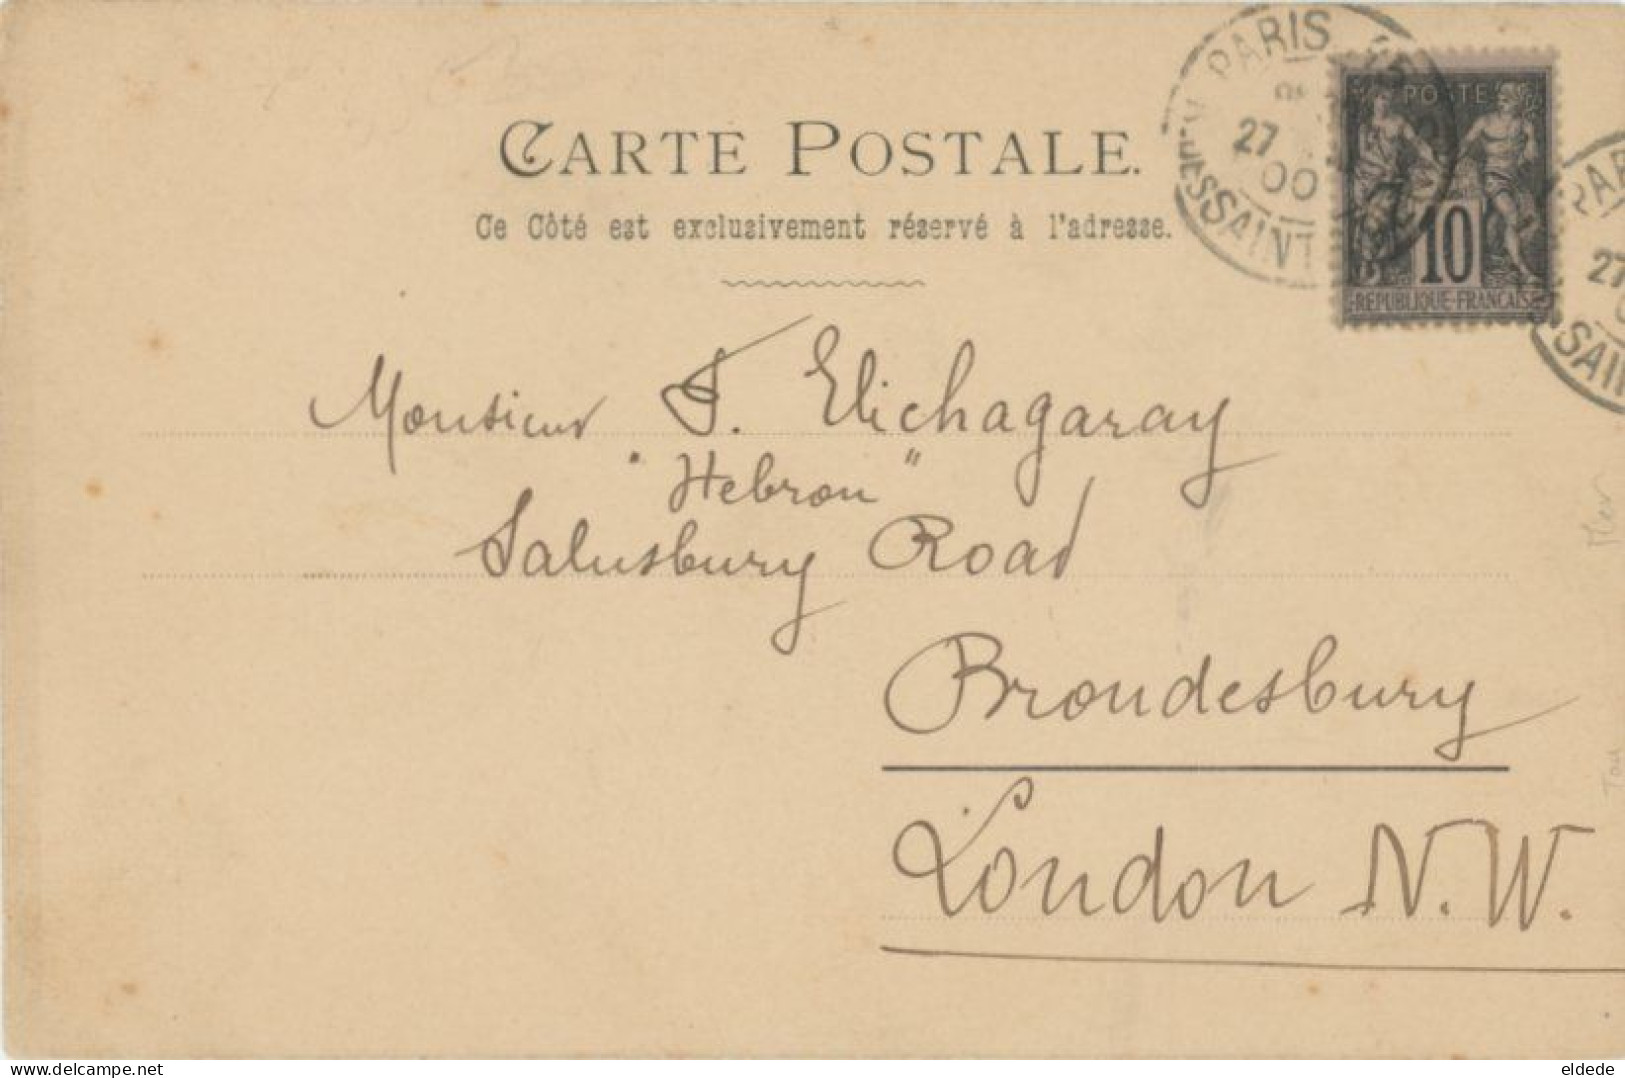 CARTE POSTALE.
Ce Côté est exclusivement réservé à l'adresse.
PARIS 15
27
00
POSTE
10
REPUBLIQUE-FRANCAISE
27
Monsieur J. Elichagaray
"Hebron"
Salusbury Road
Brondesbury
London N.W.
eldede